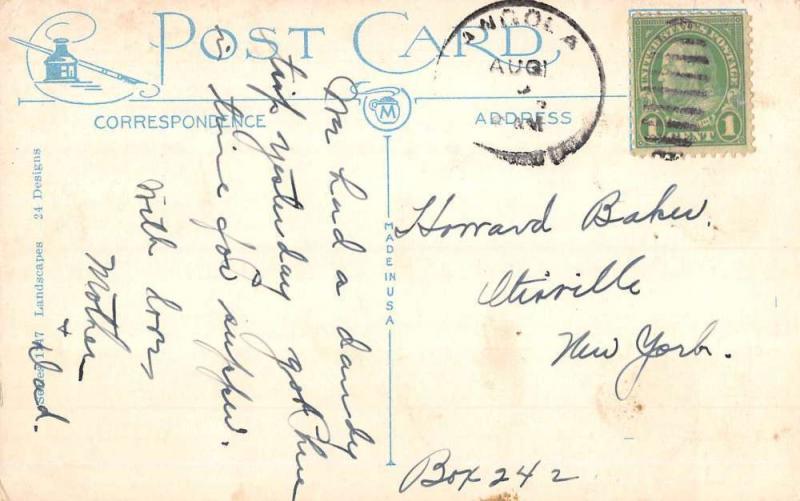 POST CARD
CORRESPONDENCE
ADDRESS
M
MADE IN U.S.A.
Landscapes 24 Designs
ANGOLA
AUG
UNITED STATES POSTAGE
1 CENT 1
We had a dandy
trip yesterday got here
in time for supper.
With love,
Mother
+ Dad.
Howard Baker.
Otisville
New York.
Box 242